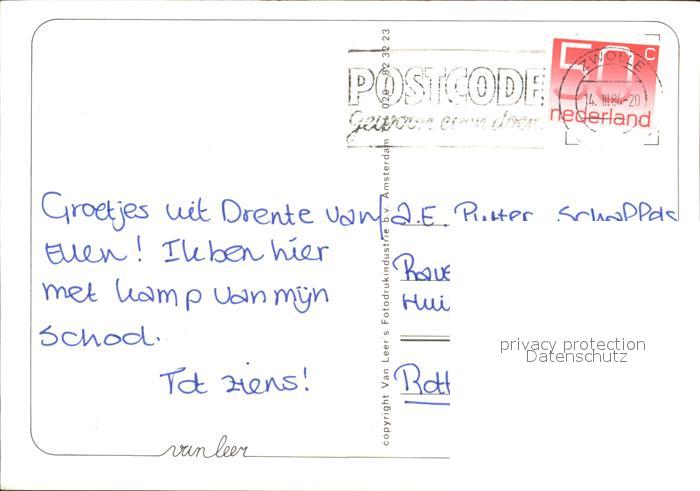 Groetjes uit Drente van
Ellen! Ik ben hier
met kamp van mijn
school.
Tot ziens!
van leer
copyright Van Leer's Fotodrukindustrie b.v. Amsterdam 020 - 82 32 23
POSTCODE
gewoon even doen
50 c
nederland
ZWOLLE
14. III 84-20
Rave
Hui
Rott
privacy protection
Datenschutz